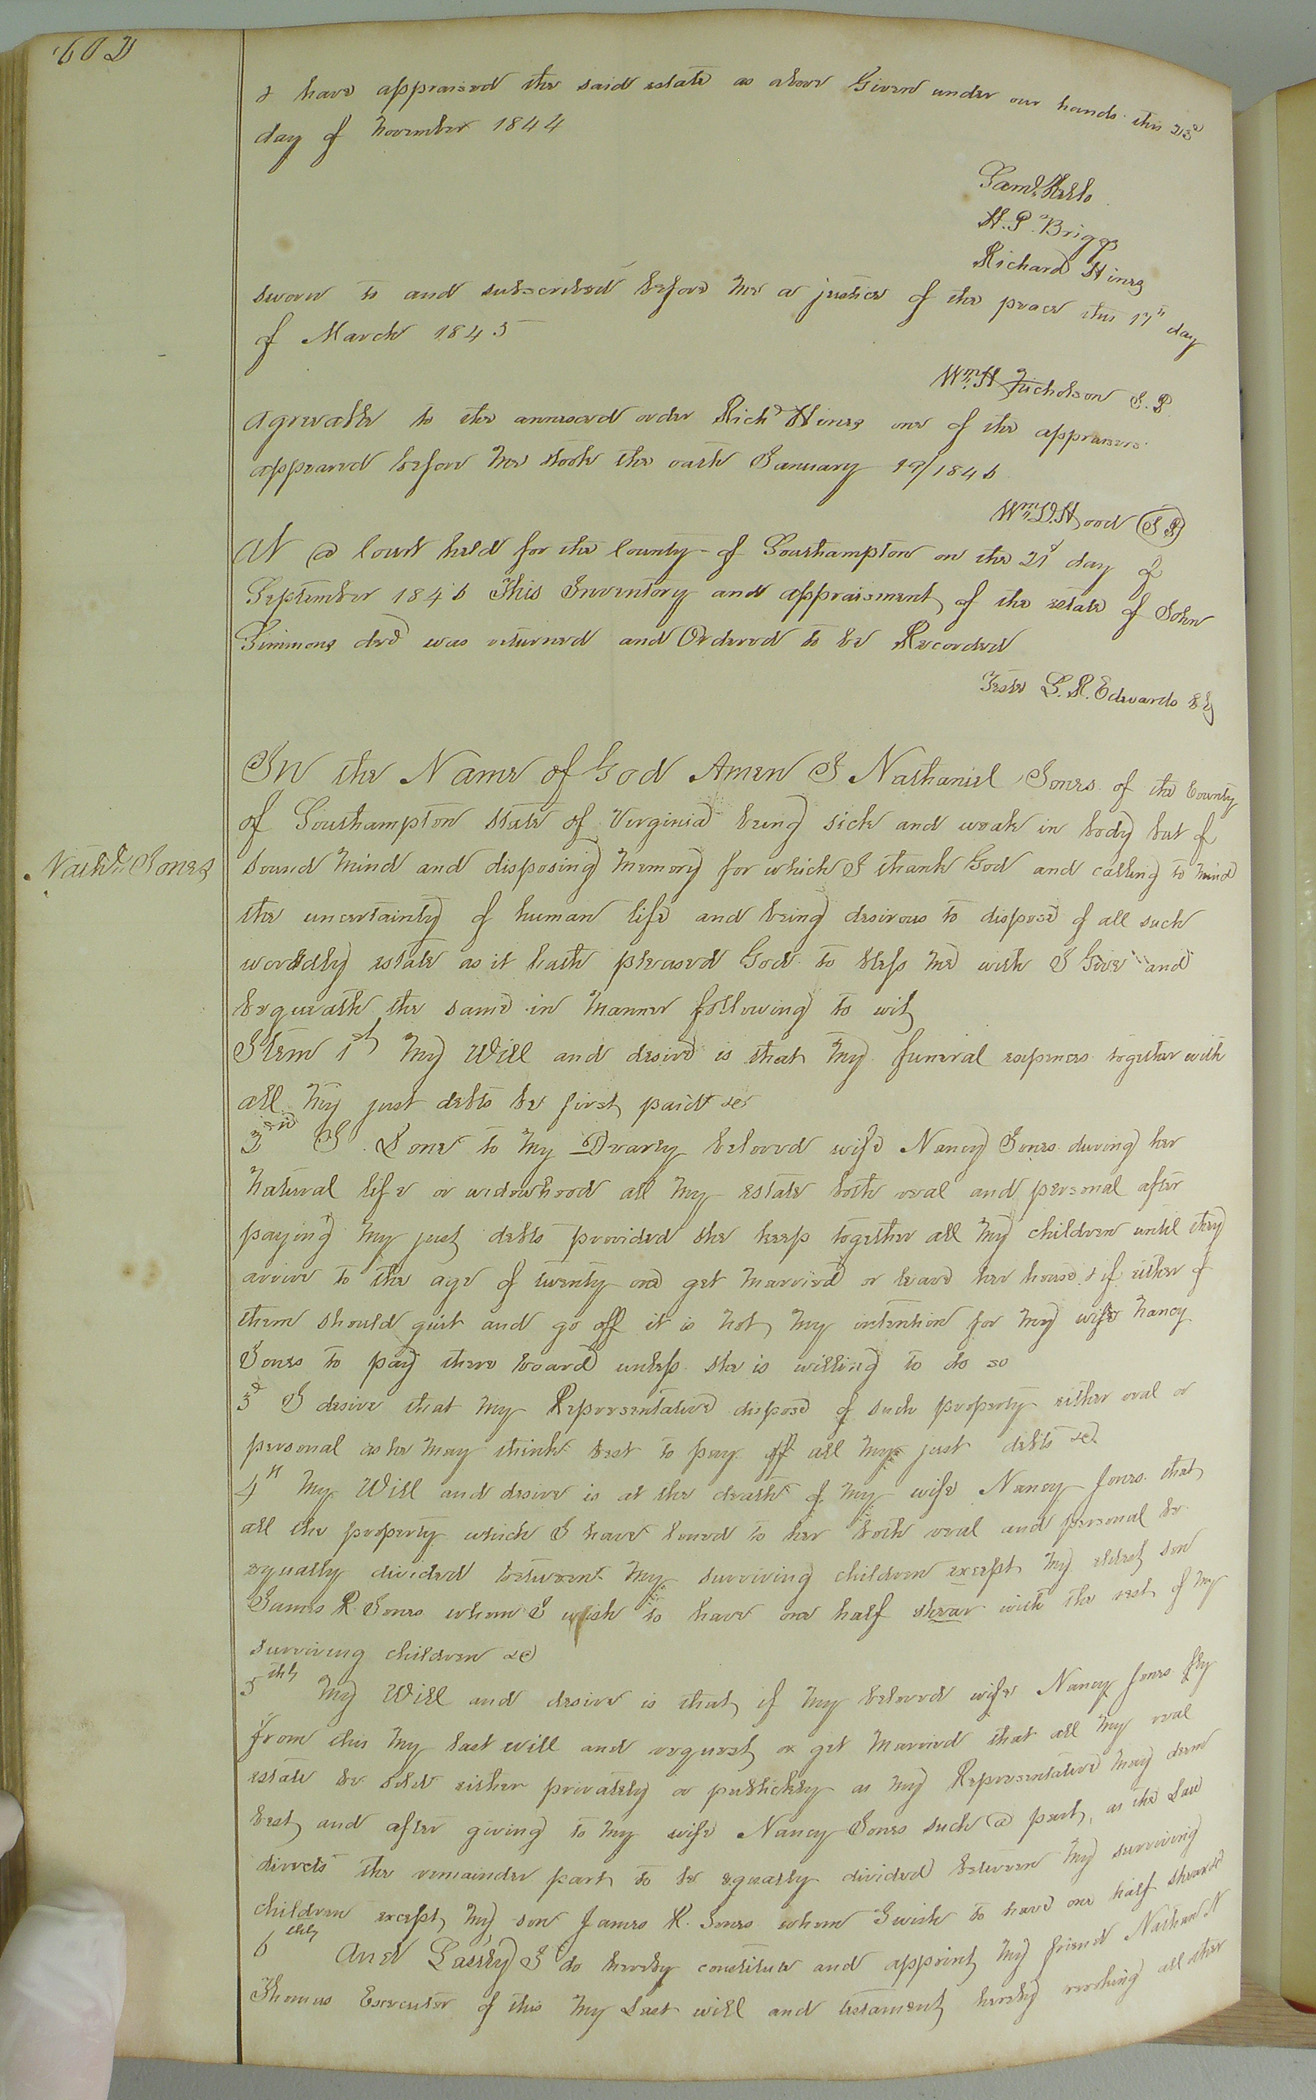 602
I have appraised the said estate as above Given under our hands this 23d
day of November 1844
Saml. Kello
H. P. Briggs
Richard Hines
Sworn to and subscribed before me a justice of the peace this 17th day
of March 1845
Wm. H Nicholson J. P.
Agreeable to the annexed order Richd Hines one of the appraisers
appeared before me & took the oath January 19/1846
Wm. D. Hood (J P)
At a Court held for the County of Southampton on the 21st day of
September 1846 This Inventory and appraisment of the estate of John
Simmons decd was returned and Ordered to be Recorded
Teste L. R. Edwards Clk
In the Name of God Amen I Nathaniel Jones of the County
of Southampton State of Virginia being sick and weak in body but of
Nathl. Jones
sound mind and disposing memory for which I thank God and calling to mind
the uncertainty of human life and being desirous to dispose of all such
worldly estate as it hath pleased God to bless me with I Give and
bequeath the same in manner following to wit
Item 1st My Will and desire is that my funeral expences together with
all my just debts be first paid &c
2nd I Lone to my Dearly beloved wife Nancy Jones during her
natural life or widowhood all my estate both real and personal after
paying my just debts provided she keep together all my children until they
arrive to the age of twenty one get married or leave her house & if either of
them should quit and go off it is not my intention for my wife Nancy
Jones to pay there board unless she is willing to do so
3d I desire that my Representative dispose of such property either real or
personal as he may think best to pay off all my just debts &c
4th My Will and desire is at the death of my wife Nancy Jones that
all the property which I have loned to her both real and personal be
equally divided between my surviving children except my eldest son
James R. Jones whom I wish to have one half shear with the rest of my
surviving children &c
5thly My Will and desire is that if my beloved wife Nancy Jones fly
from this my last will and request or get married that all my real
estate be sold either privately or publickly as my Representative may deem
best and after giving to my wife Nancy Jones such a part as the Law
directs the remainder part to be equally divided between my surviving
children except my son James R. Jones whom I wish to have one half sheare
6thly And Lastly I do hereby constitute and appoint my friend Nathan H
Thomas Executor of this my Last will and testament hereby revoking all other